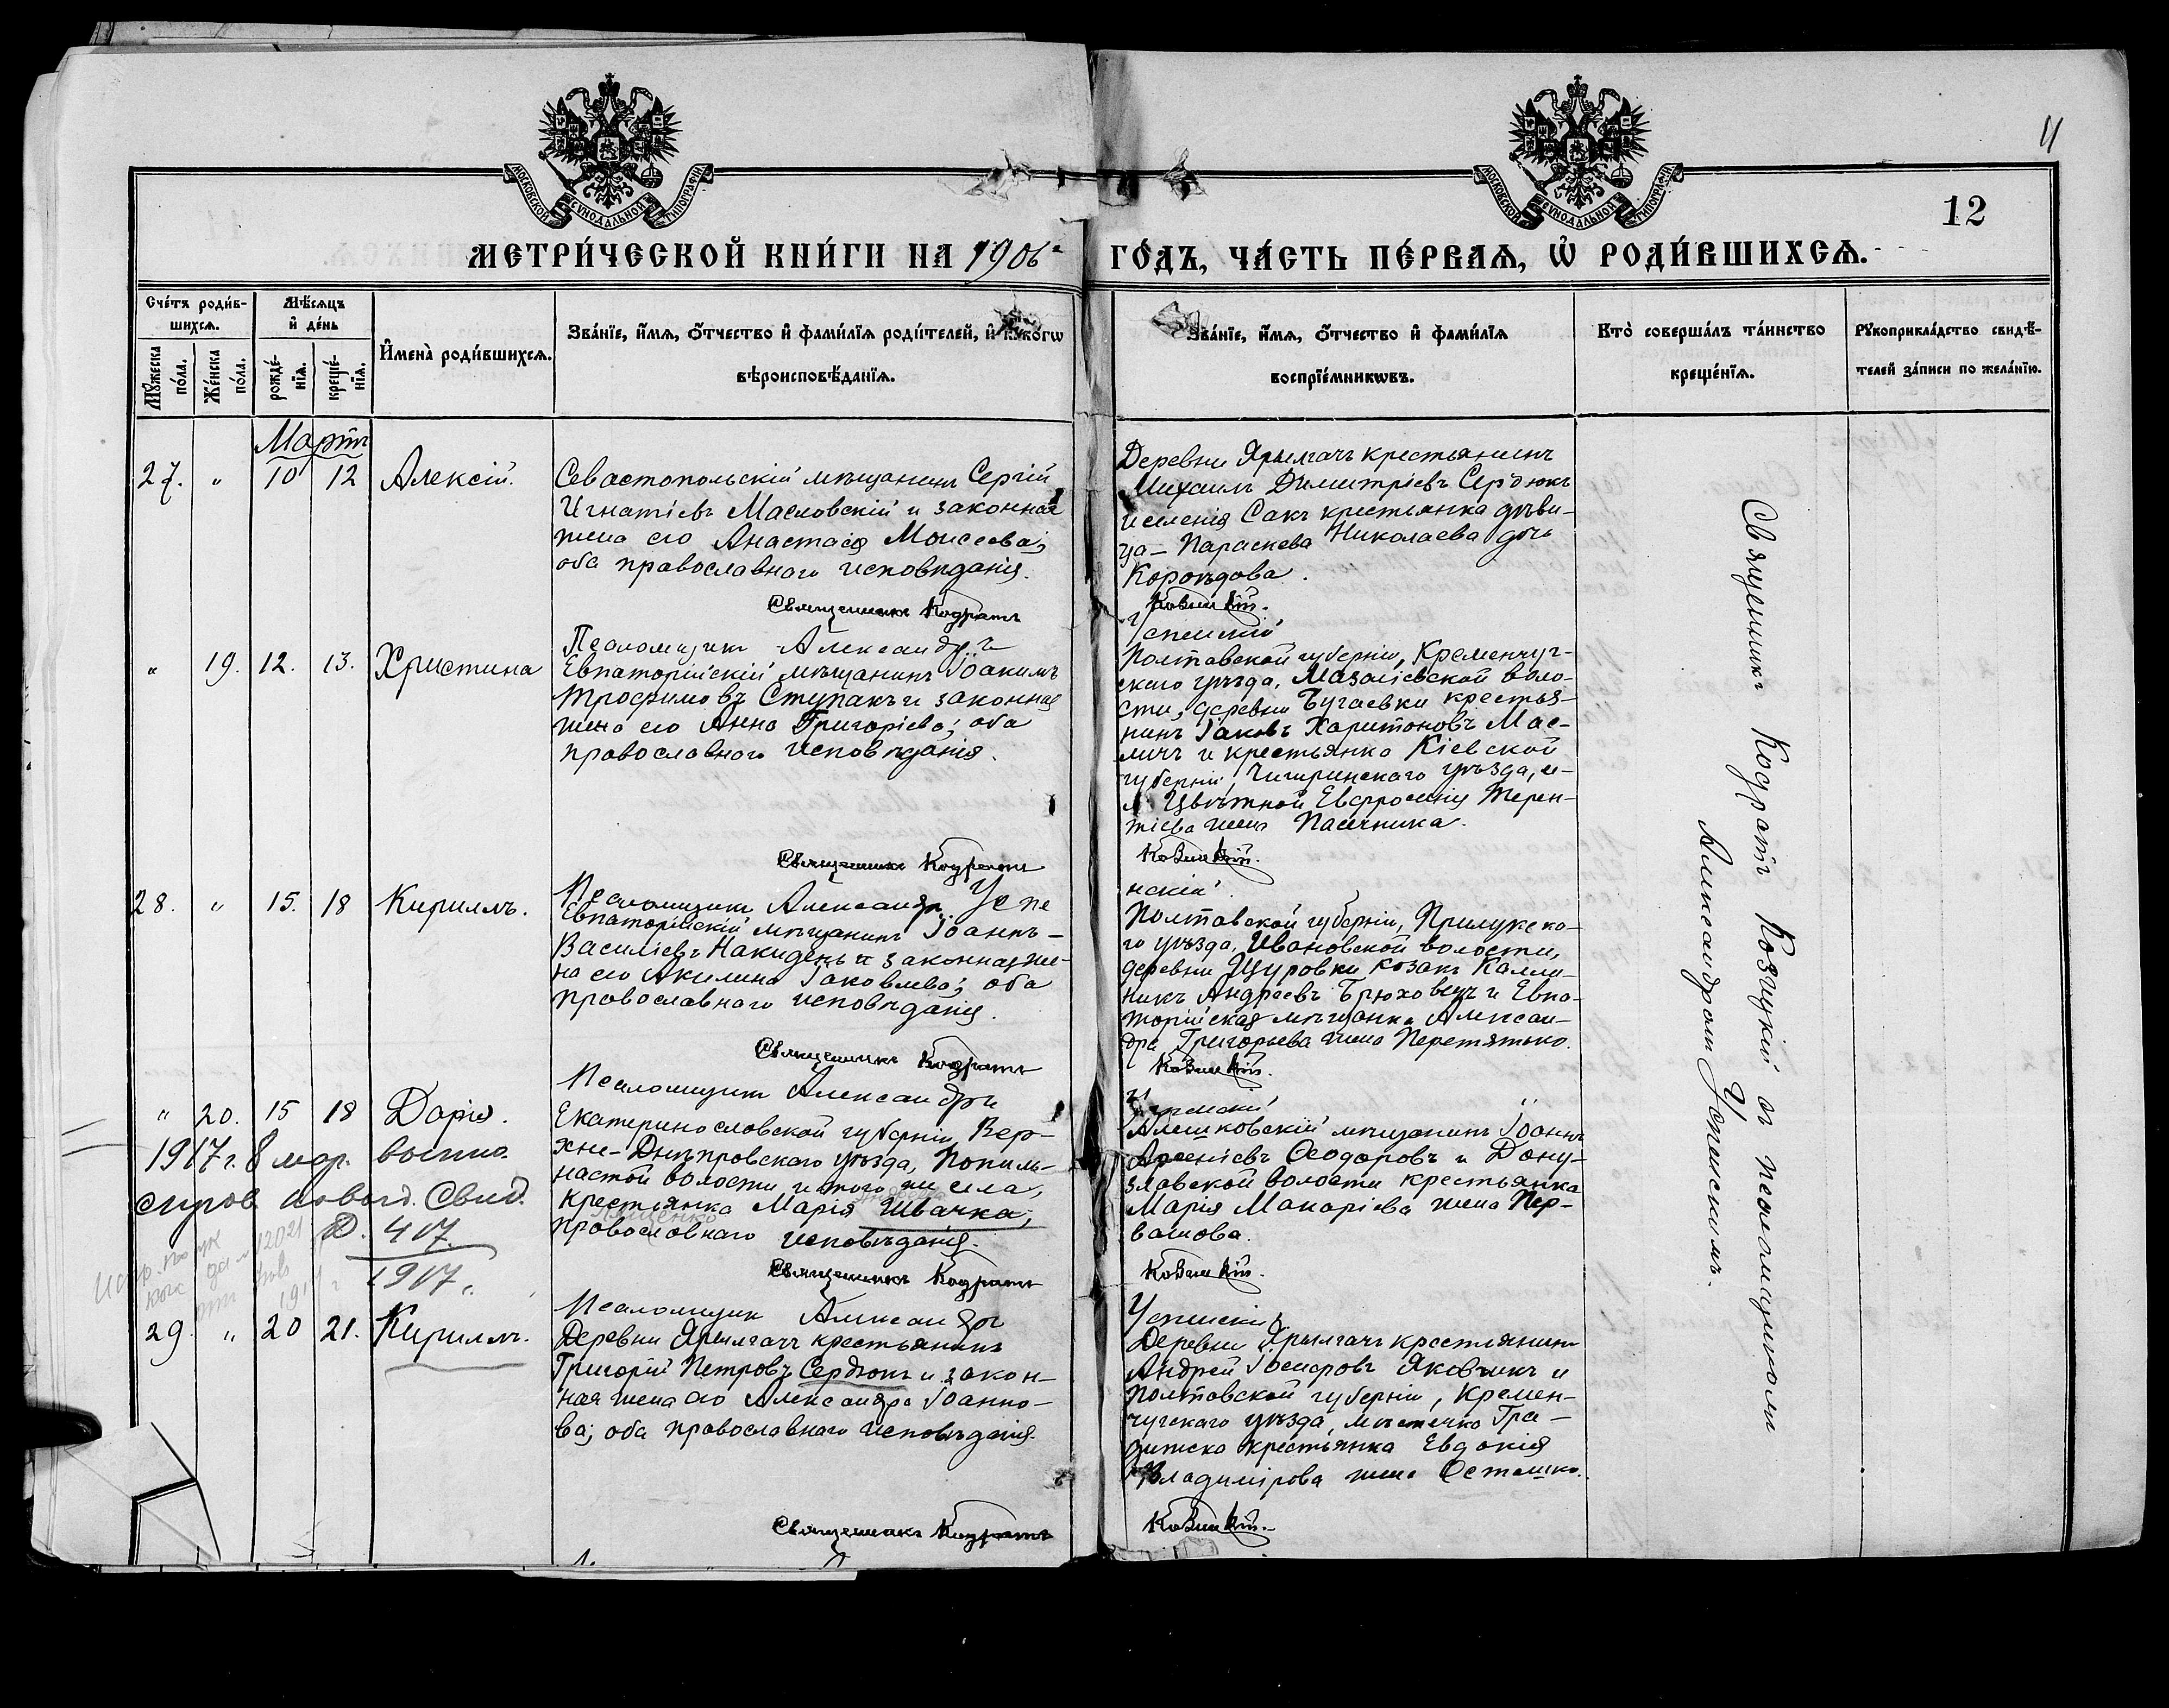 11
12
МОСКОВСКОЙ СѴНОДАЛЬНОЙ ТИПОГРАФІИ
МОСКОВСКОЙ СѴНОДАЛЬНОЙ ТИПОГРАФІИ
МЕТРИ́ЧЕСКОЙ КНИ́ГИ НА 1906 г ГО́ДЪ, ЧА́СТЬ ПЕ́РВАЯ, Ѡ҆ РОДИ́ВШИХСЯ.
Сче́тъ роди́в-
шихся.
Мѣ́сяцъ
и҆ де́нь
Му́жеска по́ла.
Же́нска по́ла.
рожде́-
нїя.
креще́-
нїя.
И҆мена̀ роди́вшихся.
Зва́нїе, и҆́мя, о҆́тчество и҆ фами́лїя роди́телей, и҆ како́гѡ
вѣроисповѣ́данїя.
Зва́нїе, и҆́мя, о҆́тчество и҆ фами́лїя
воспрїе́мникѡвъ.
Кто̀ соверша́лъ та́инство
креще́нїя.
Рꙋкоприкла́дство свидѣ́-
телей за́писи по жела́нїю.
Мартъ
27. " 10 12 Алексій.
Севастопольскій мѣщанинъ Сергій
Игнатіевъ Масловскій и законная
жена его Анастасія Моисеева;
оба православнаго исповѣданія.
Священникъ Кодратъ
Деревни Ярылгачъ крестьянинъ
Михаилъ Димитріевъ Сердюкъ
и селенія Сакъ крестьянка дѣви-
ца - Параскева Николаева дочь
Козицкій.
Псаломщикъ Александръ
Успенскій
" 19. 12. 13. Христина
Евпаторійскій мѣщанинъ Іоакимъ
Трофимовъ Ступакъ и законная
жена его Анна Григоріева; оба
православнаго исповѣданія.
Священникъ Кодратъ
Полтавской губерніи, Кременчуг-
скаго уѣзда, волο-
сти, деревни Бугаевки крестья-
нинъ Іаковъ Харитоновъ Мас-
личъ и крестьянка Кіевской
губерніи, Чигиринскаго уѣзда, м-
Цвѣтной Евфросинія Терен-
тіева жена Пасичника.
Козицкій.
Псаломщикъ Александръ Успе
нскій.
28. " 15. 18 Кириллъ.
Евпаторійскій мѣщанинъ Іоаннъ -
Василіевъ Накидень и законная же-
на его Акилина Іаковлева; оба
православнаго исповѣданія.
Священникъ Кодратъ
Полтавской губерніи, Прилукска-
го уѣзда, Ивановской волости,
деревни Щуровки козакъ Калли-
никъ Андреевъ Брюховецъ и Евпа-
торійская мѣщанка Алексан-
дра Григорьева жена Перетятько.
Козицкій.
Псаломщикъ Александръ
Успенскій
" 20. 15 18 Дарія.
Екатеринославской губерніи, Вер-
хне-Днѣпровскаго уѣзда, Попель-
настой волости и того же села,
крестьянка Марія Швачка;
православнаго исповѣданія.
Священникъ Кодратъ
Алешковскій мѣщанинъ Іоаннъ
Арсеніевъ Ѳеодоровъ и Дону-
злавской волости крестьянка
Марія Макаріева жена Пер-
вакова.
Козицкій.
1917 г. 8 мар.
Свид.
417.
1917 г.
Псаломщикъ Александръ
Успенскій
29. " 20 21. Кириллъ.
Деревни Ярылгачъ крестьянинъ
Григорій Петровъ Сердюкъ и закон-
ная жена его Александра Іоанно-
ва; оба православнаго исповѣданія.
Священникъ Кодратъ
Деревни Ярылгачъ крестьянинъ
Андрей Іосифовъ Яковчикъ и
Полтавской губерніи, Кремен-
чугскаго уѣзда, мѣстечка Гра-
дижска крестьянка Евдокія
Владимірова жена Осташко.
Козицкій.
Священникъ Кодратъ Козицкій съ псаломщикомъ
Александромъ Успенскимъ.